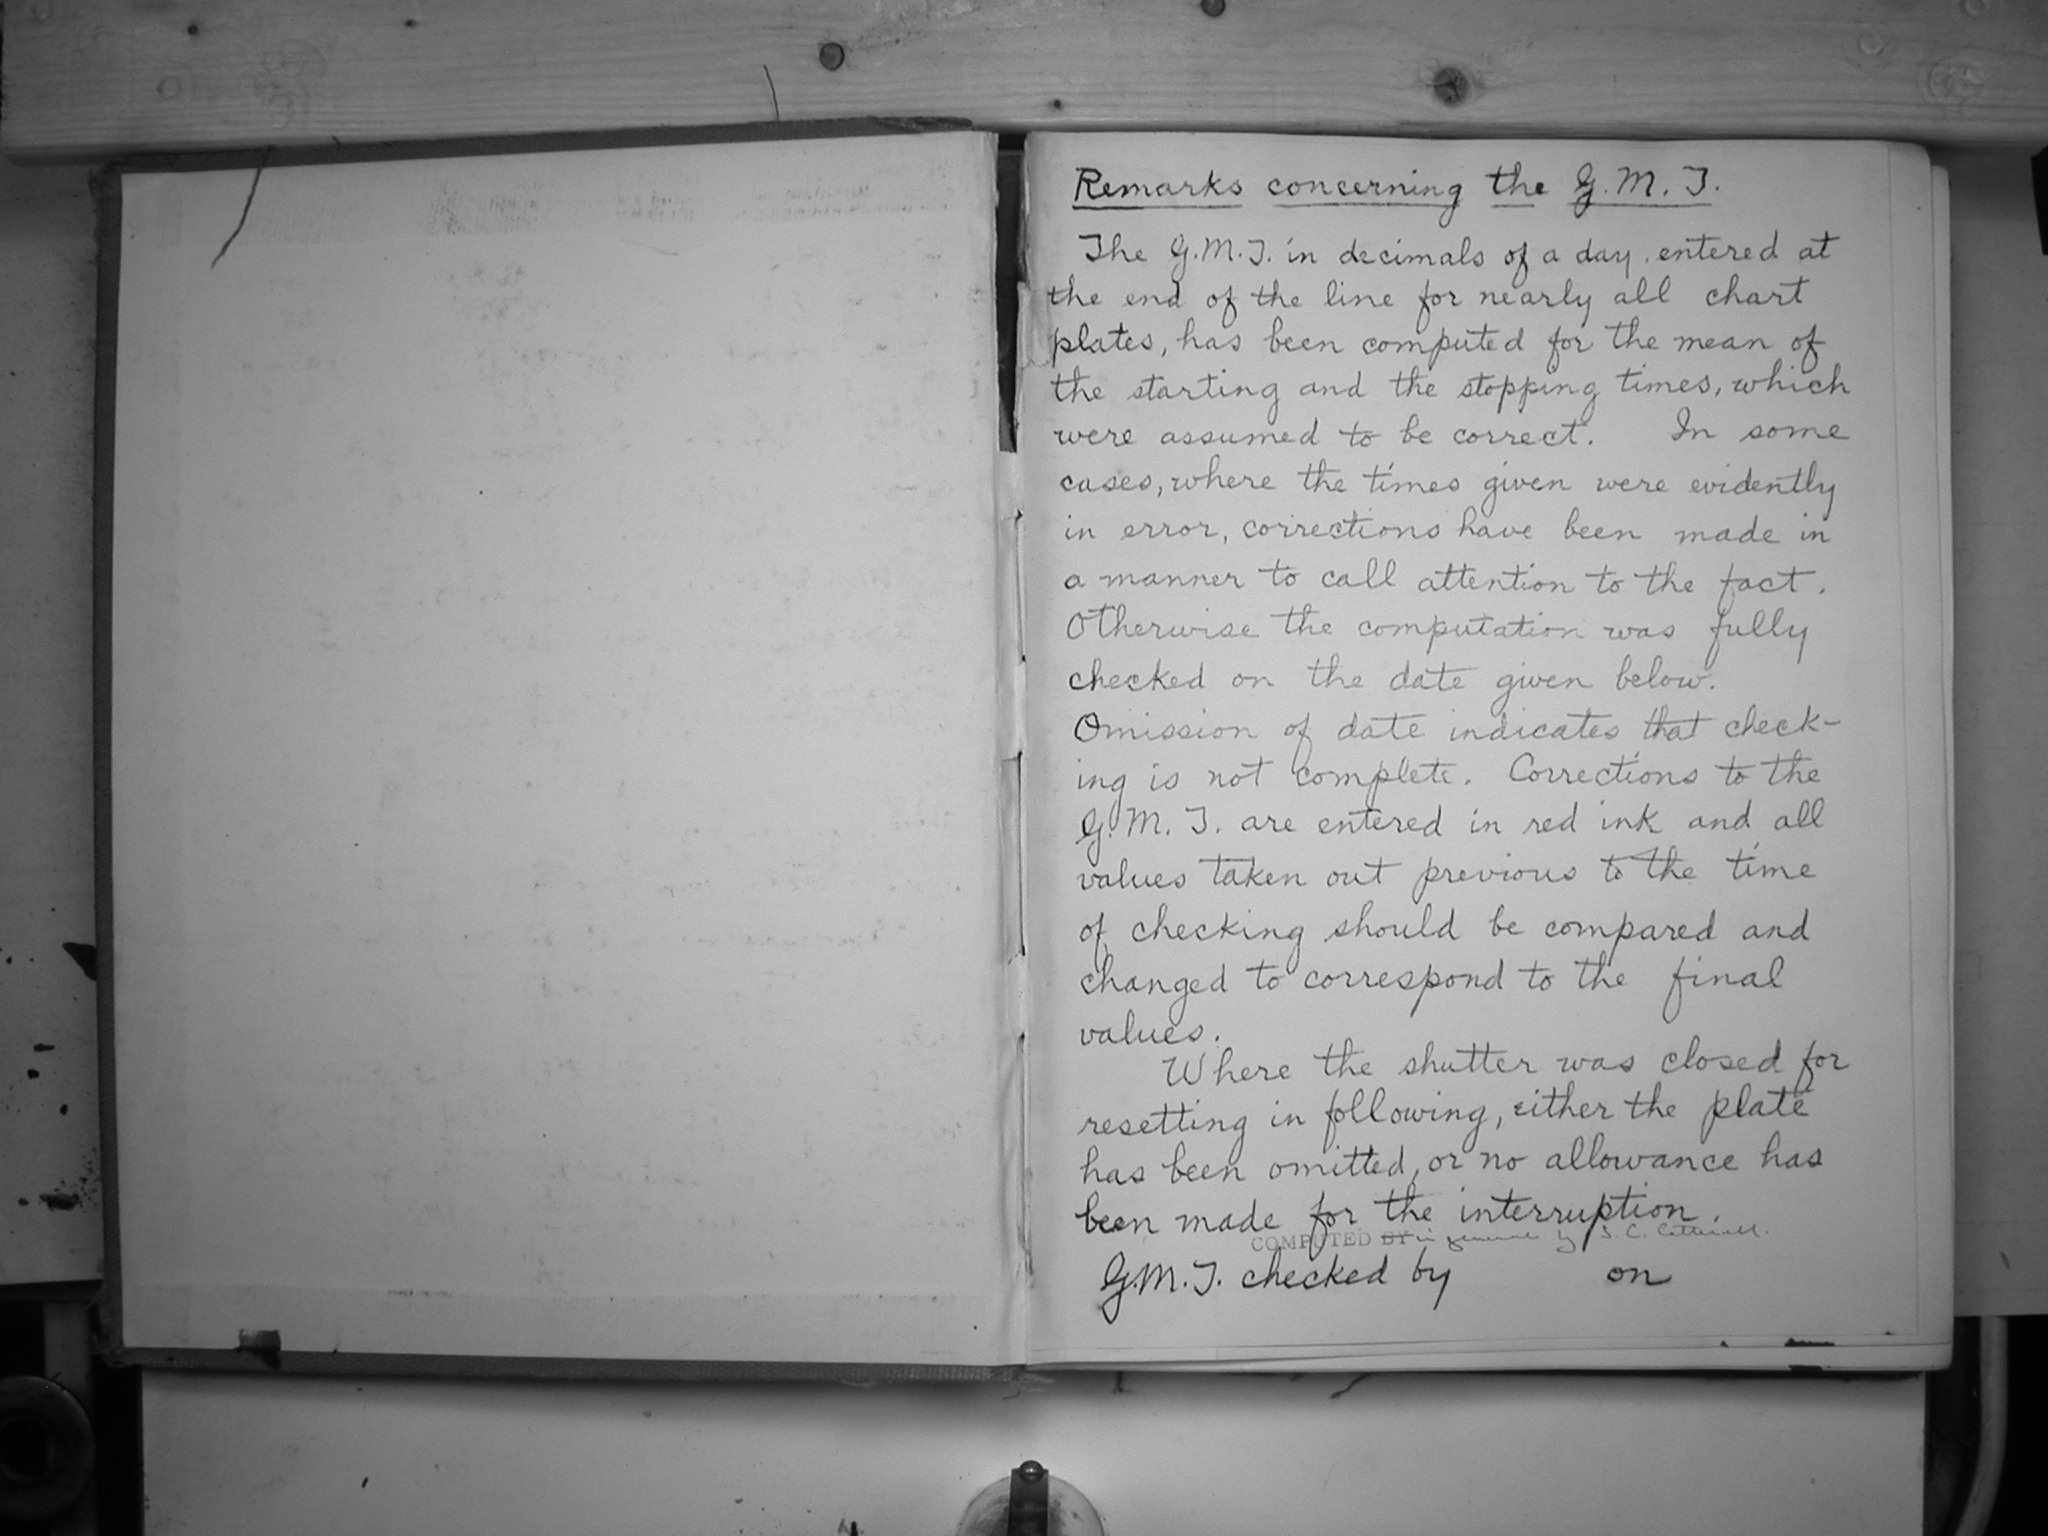 Remarks concerning the G.M.T.
The G.M.T. in decimals of a day, entered at
the end of the line for nearly all chart
plates, has been computed for the mean of
the starting and the stopping times, which
were assumed to be correct. In some
cases, where the times given were evidently
in error, corrections have been made in
a manner to call attention to the fact.
Otherwise the computation was fully
checked on the date given below.
Omission of date indicates that check-
ing is not complete. Corrections to the
G.M.T. are entered in red ink and all
values taken out previous to the time
of checking should be compared and
changed to correspond to the final
values.
Where the shutter was closed for
resetting in following, either the plate
has been omitted, or no allowance has
been made for the interruption.
COMPUTED BY in general by S. C.
G.M.T. checked by on